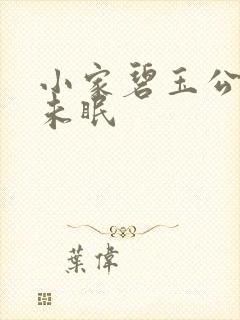 小家碧玉公
未眠
葉偉